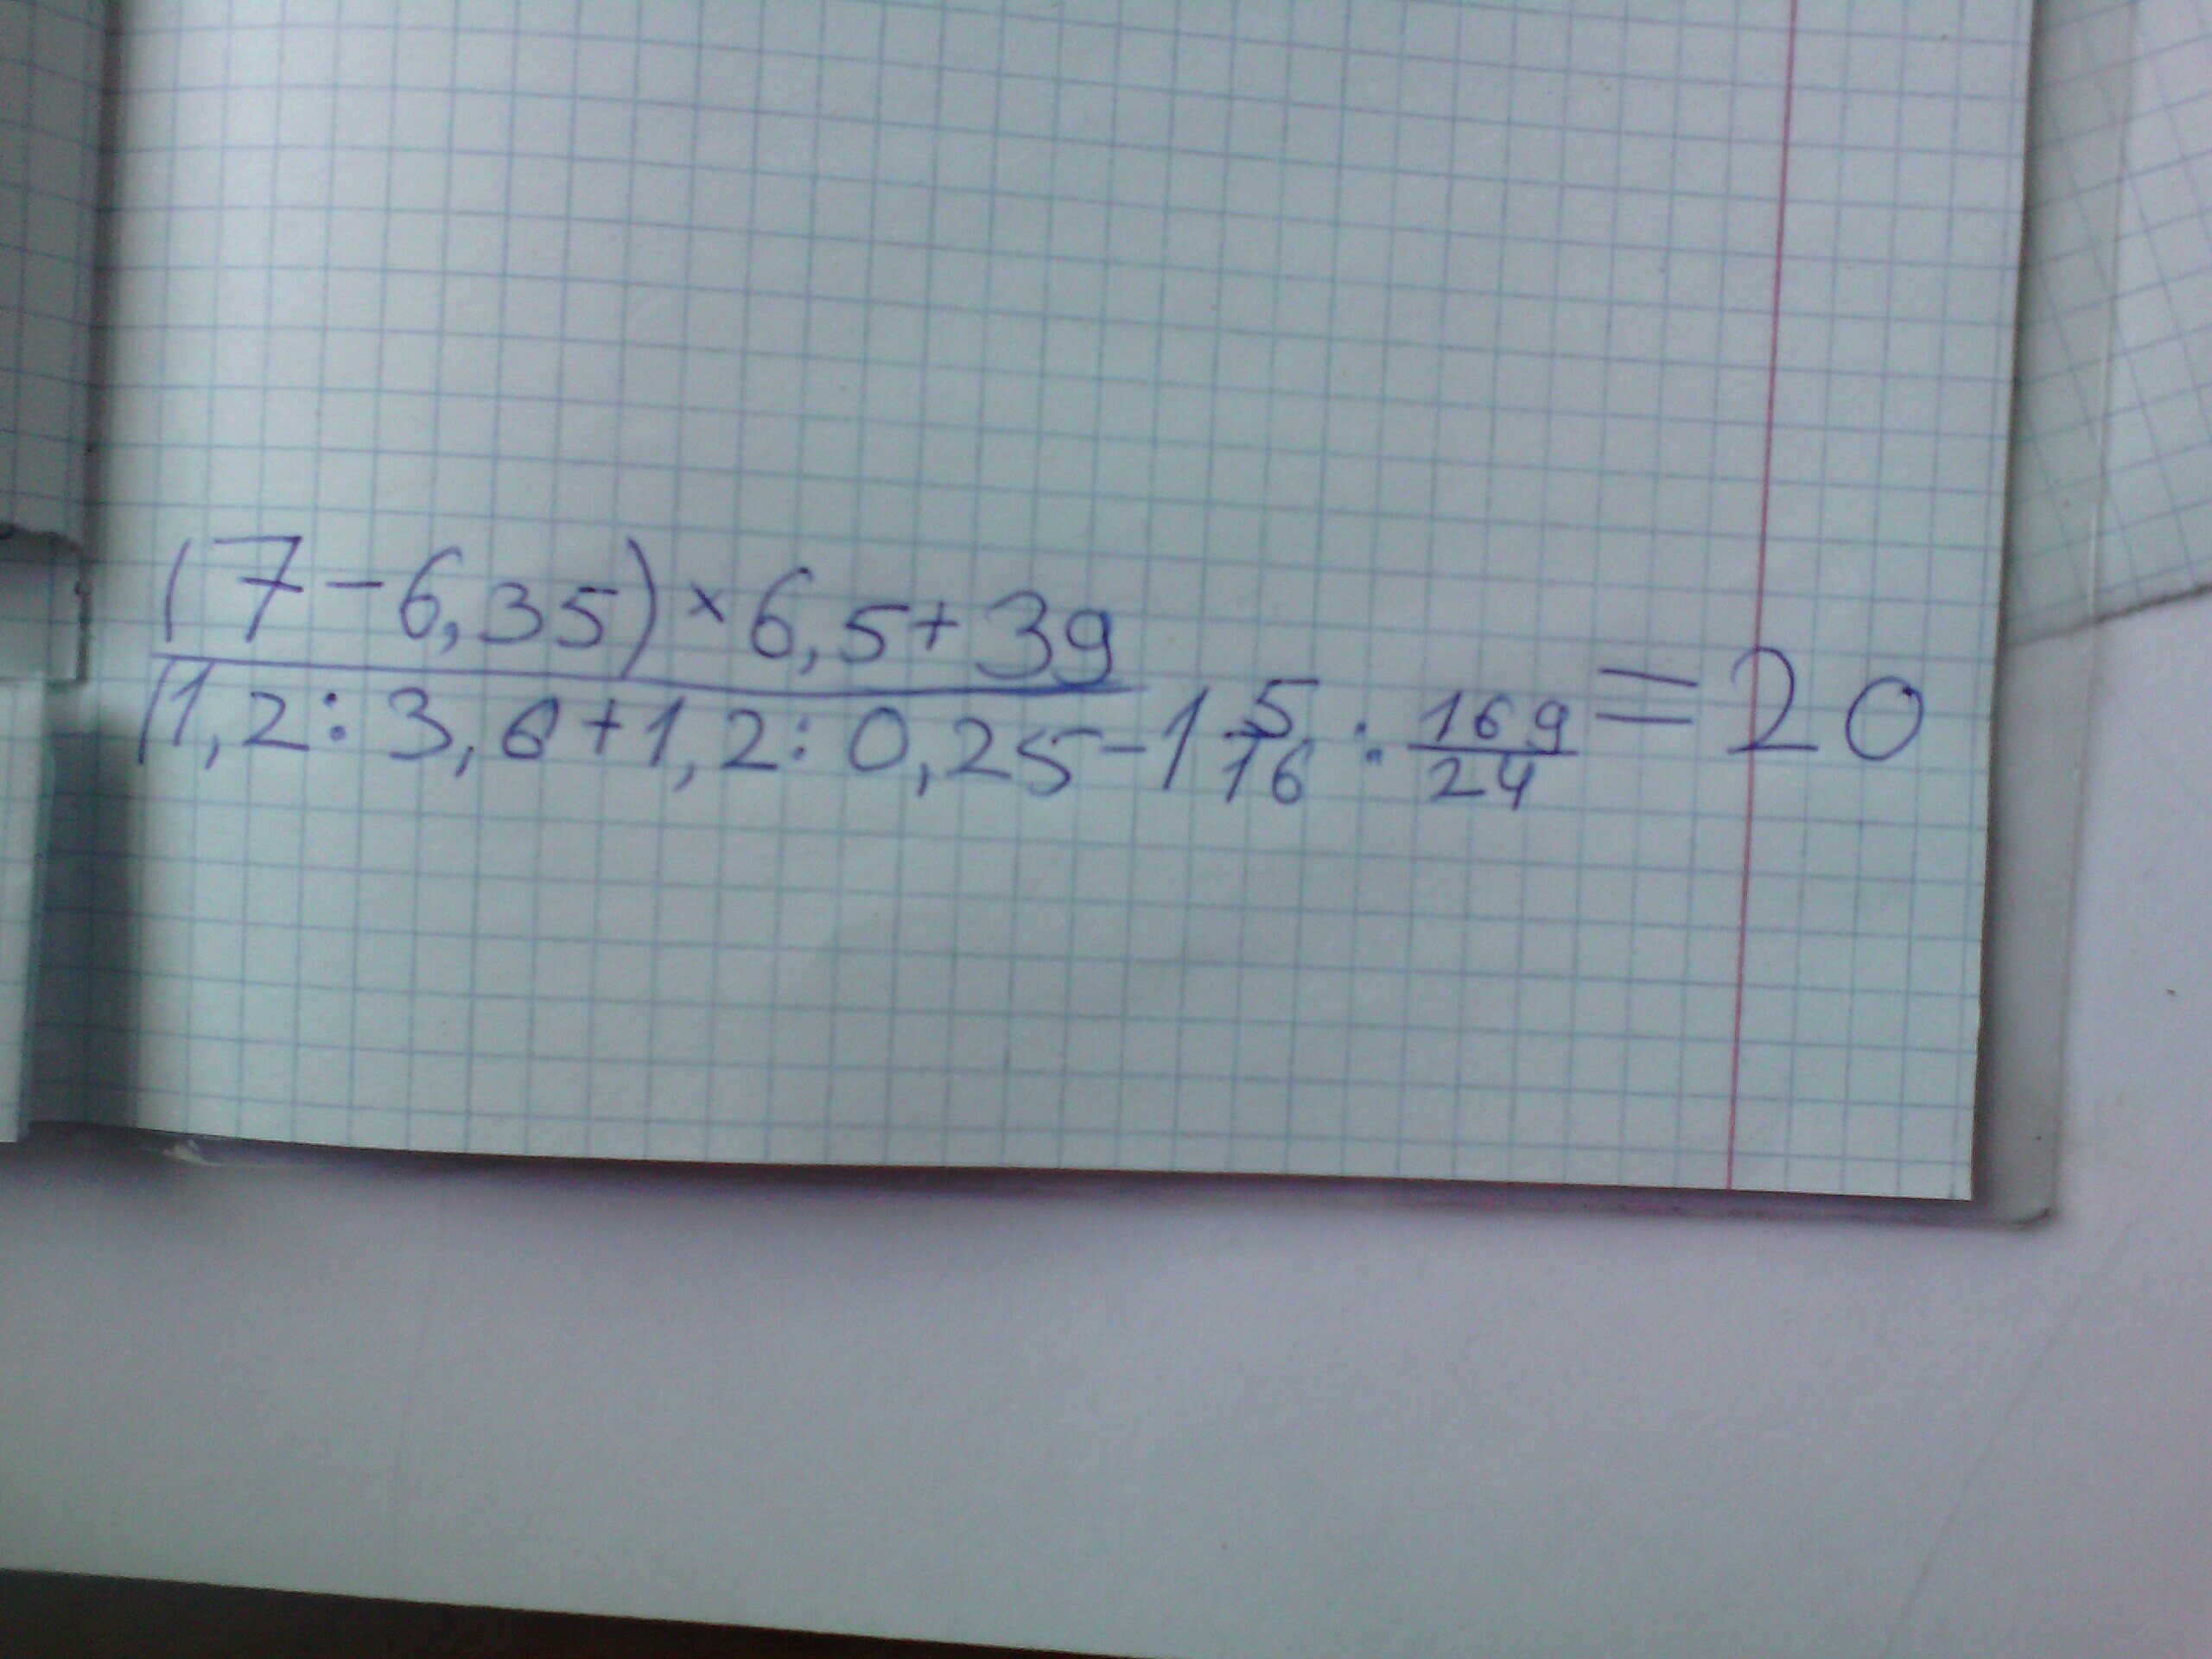 (7-6,35)×6,5+39
(1,2:3,6+1,2:0,25-1 5/16 : 169/24 = 20